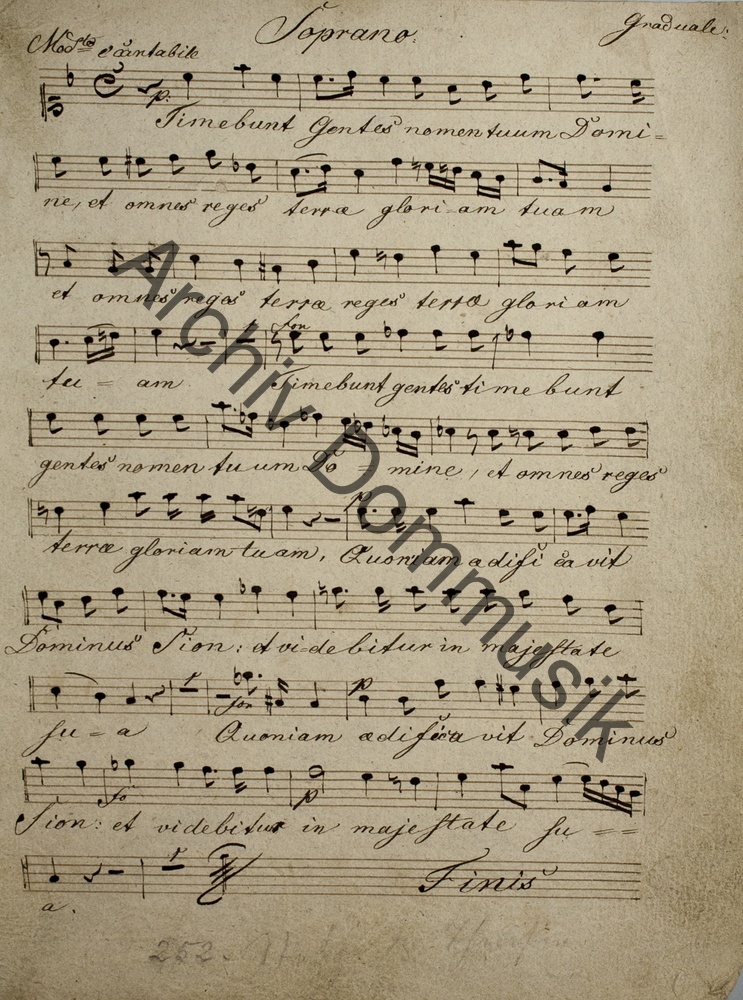 Soprano. Graduale.
Mod.to e cantabile
p.
Timebunt Gentes nomen tuum Domi=
ne, et omnes reges terræ glori-am tuam
et omnes reges terræ reges terræ gloriam
for
tu = am Timebunt gentes timebunt
gentes nomen tuum Do = mine, et omnes reges
p
terræ gloriam tuam, Quoniam ædifi ca vit
Dominus Sion: et videbitur in majestate
for p
su = a Quoniam ædifica vit Dominus
fo p
Sion: et videbitur in majestate su = =
a. Finis
252.
Archiv Dommusik